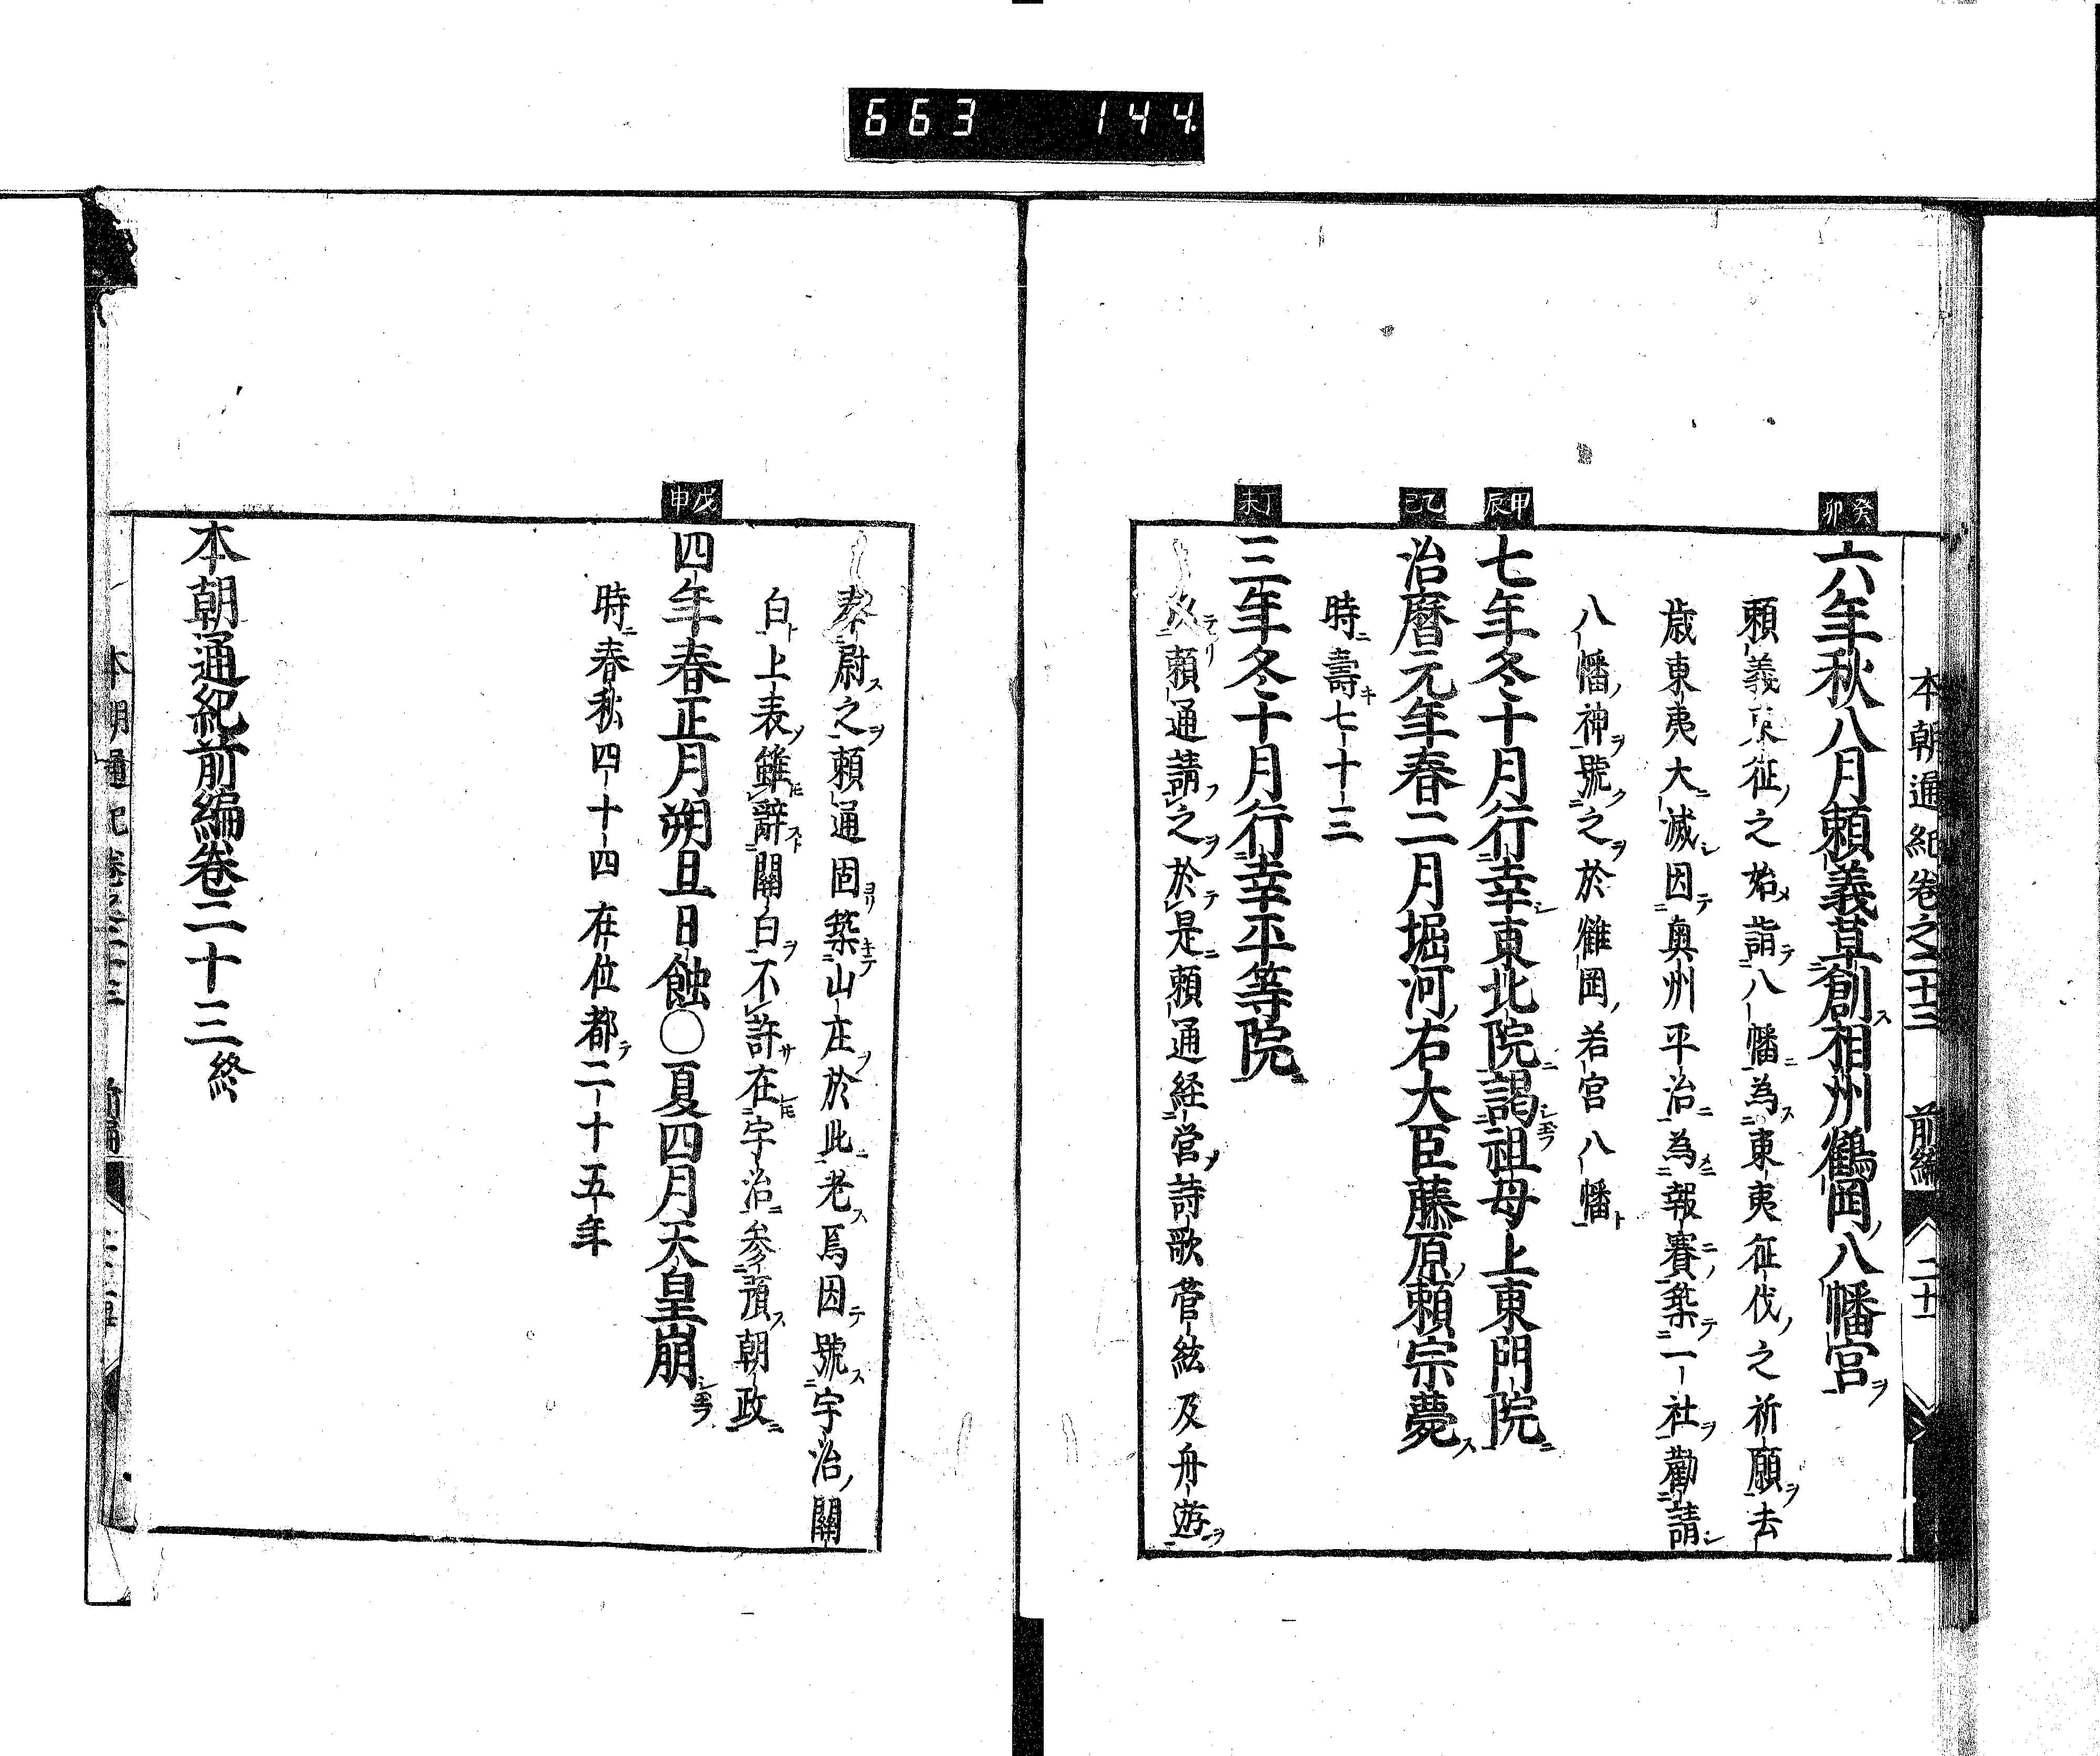 663 144.
本朝通紀卷之二十三 前編 二十一
癸卯
六年秋八月頼義草創相州鶴岡八幡宮
頼義東征之始詣八幡為東夷征伐之祈願去
歳東夷大滅因奥州平治為報賽築一社勸請
八幡神號之於鶴岡若宮八幡
甲辰
七年冬十月行幸東北院謁祖母上東門院
乙巳
治暦元年春二月堀河右大臣藤原頼宗薨
時壽七十三
丁未
三年冬十月行幸平等院
以頼通請之於是頼通経営詩歌管絃及舟遊
奉尉之頼通固築山庄於此老焉因號宇治關
白上表雖辭關白不許在宇治参預朝政
戊申
四年春正月朔旦日蝕〇夏四月天皇崩
時春秋四十四在位都二十五年
本朝通紀前編卷二十三終